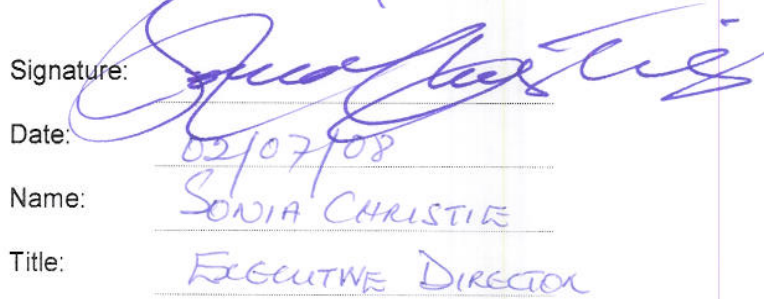 Signature: Sonia Christie
Date: 02/07/08
Name: SONIA CHRISTIE
Title: EXECUTIVE DIRECTOR